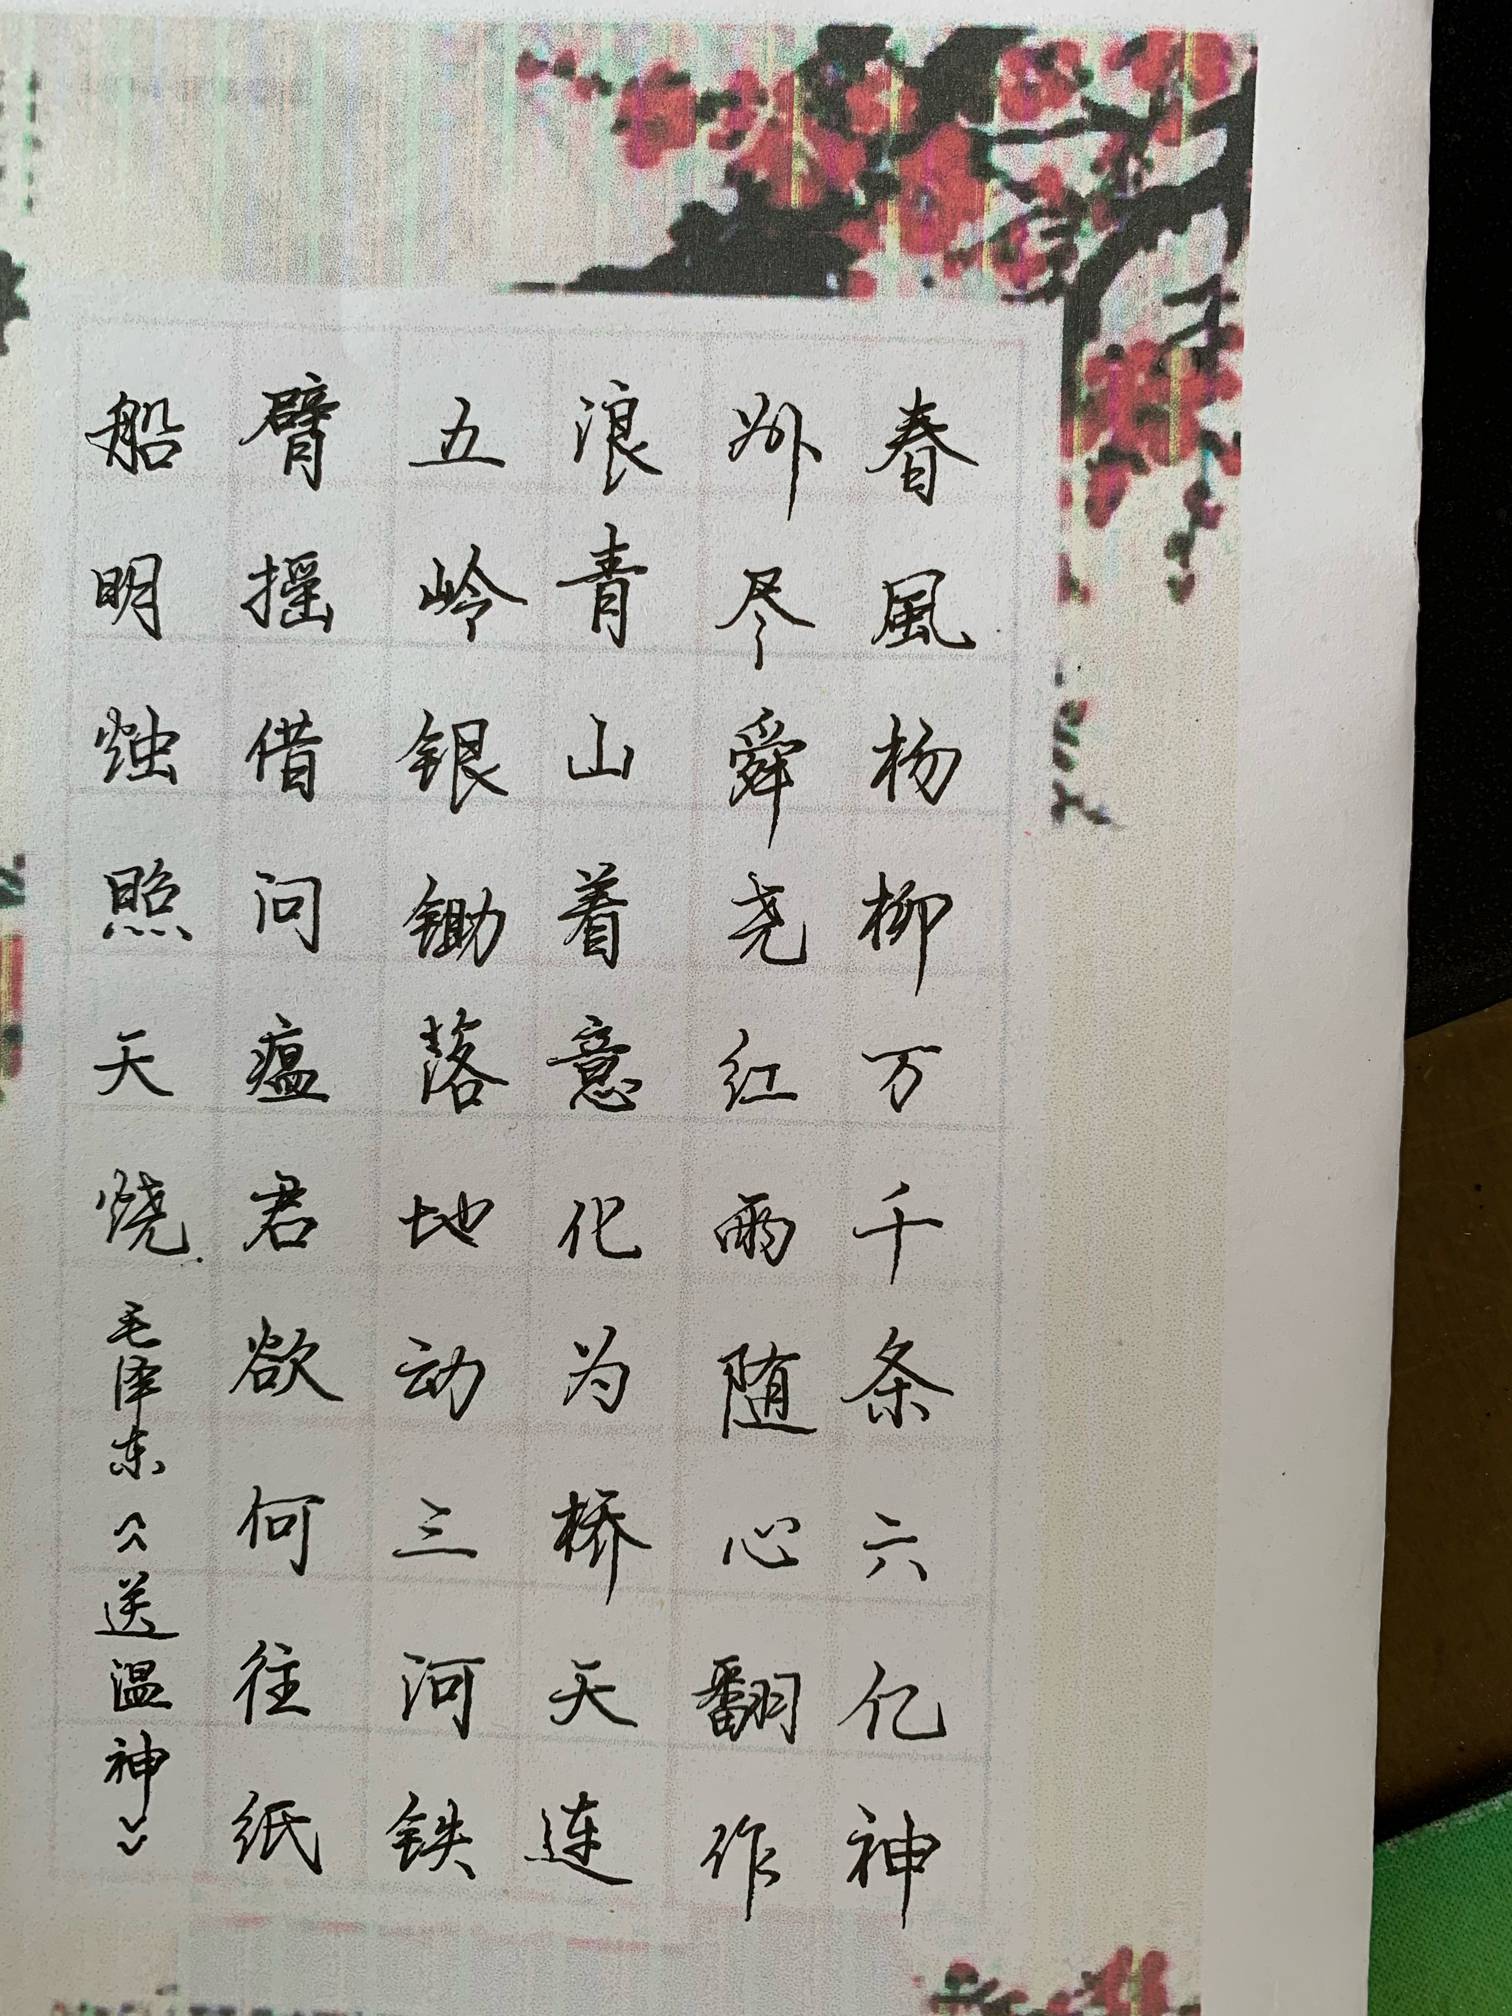 春風杨柳万千条六亿神
州尽舜尧红雨随心翻作
浪青山着意化为桥天连
五岭银锄落地动三河铁
臂摇借问瘟君欲何往纸
船明烛照天烧 毛泽东《送温神》